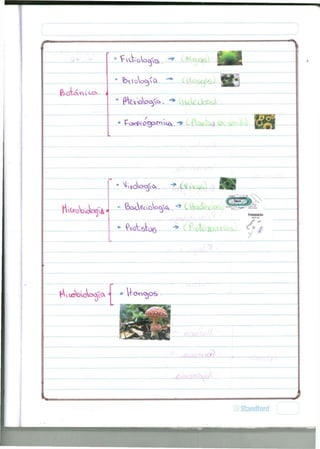 • Ficología. → (Algas)
• Briología → (Musgos)
Botánica
• Pteriología. → (Helechos)
• Fanerogamica. → (Plantas con semilla)
• Virología. → (Virus)
Microbiología
• Bacteriología. → (Bacterias)
• Protistas → (Protozoarios)
Microbiología
• Hongos.
Standford